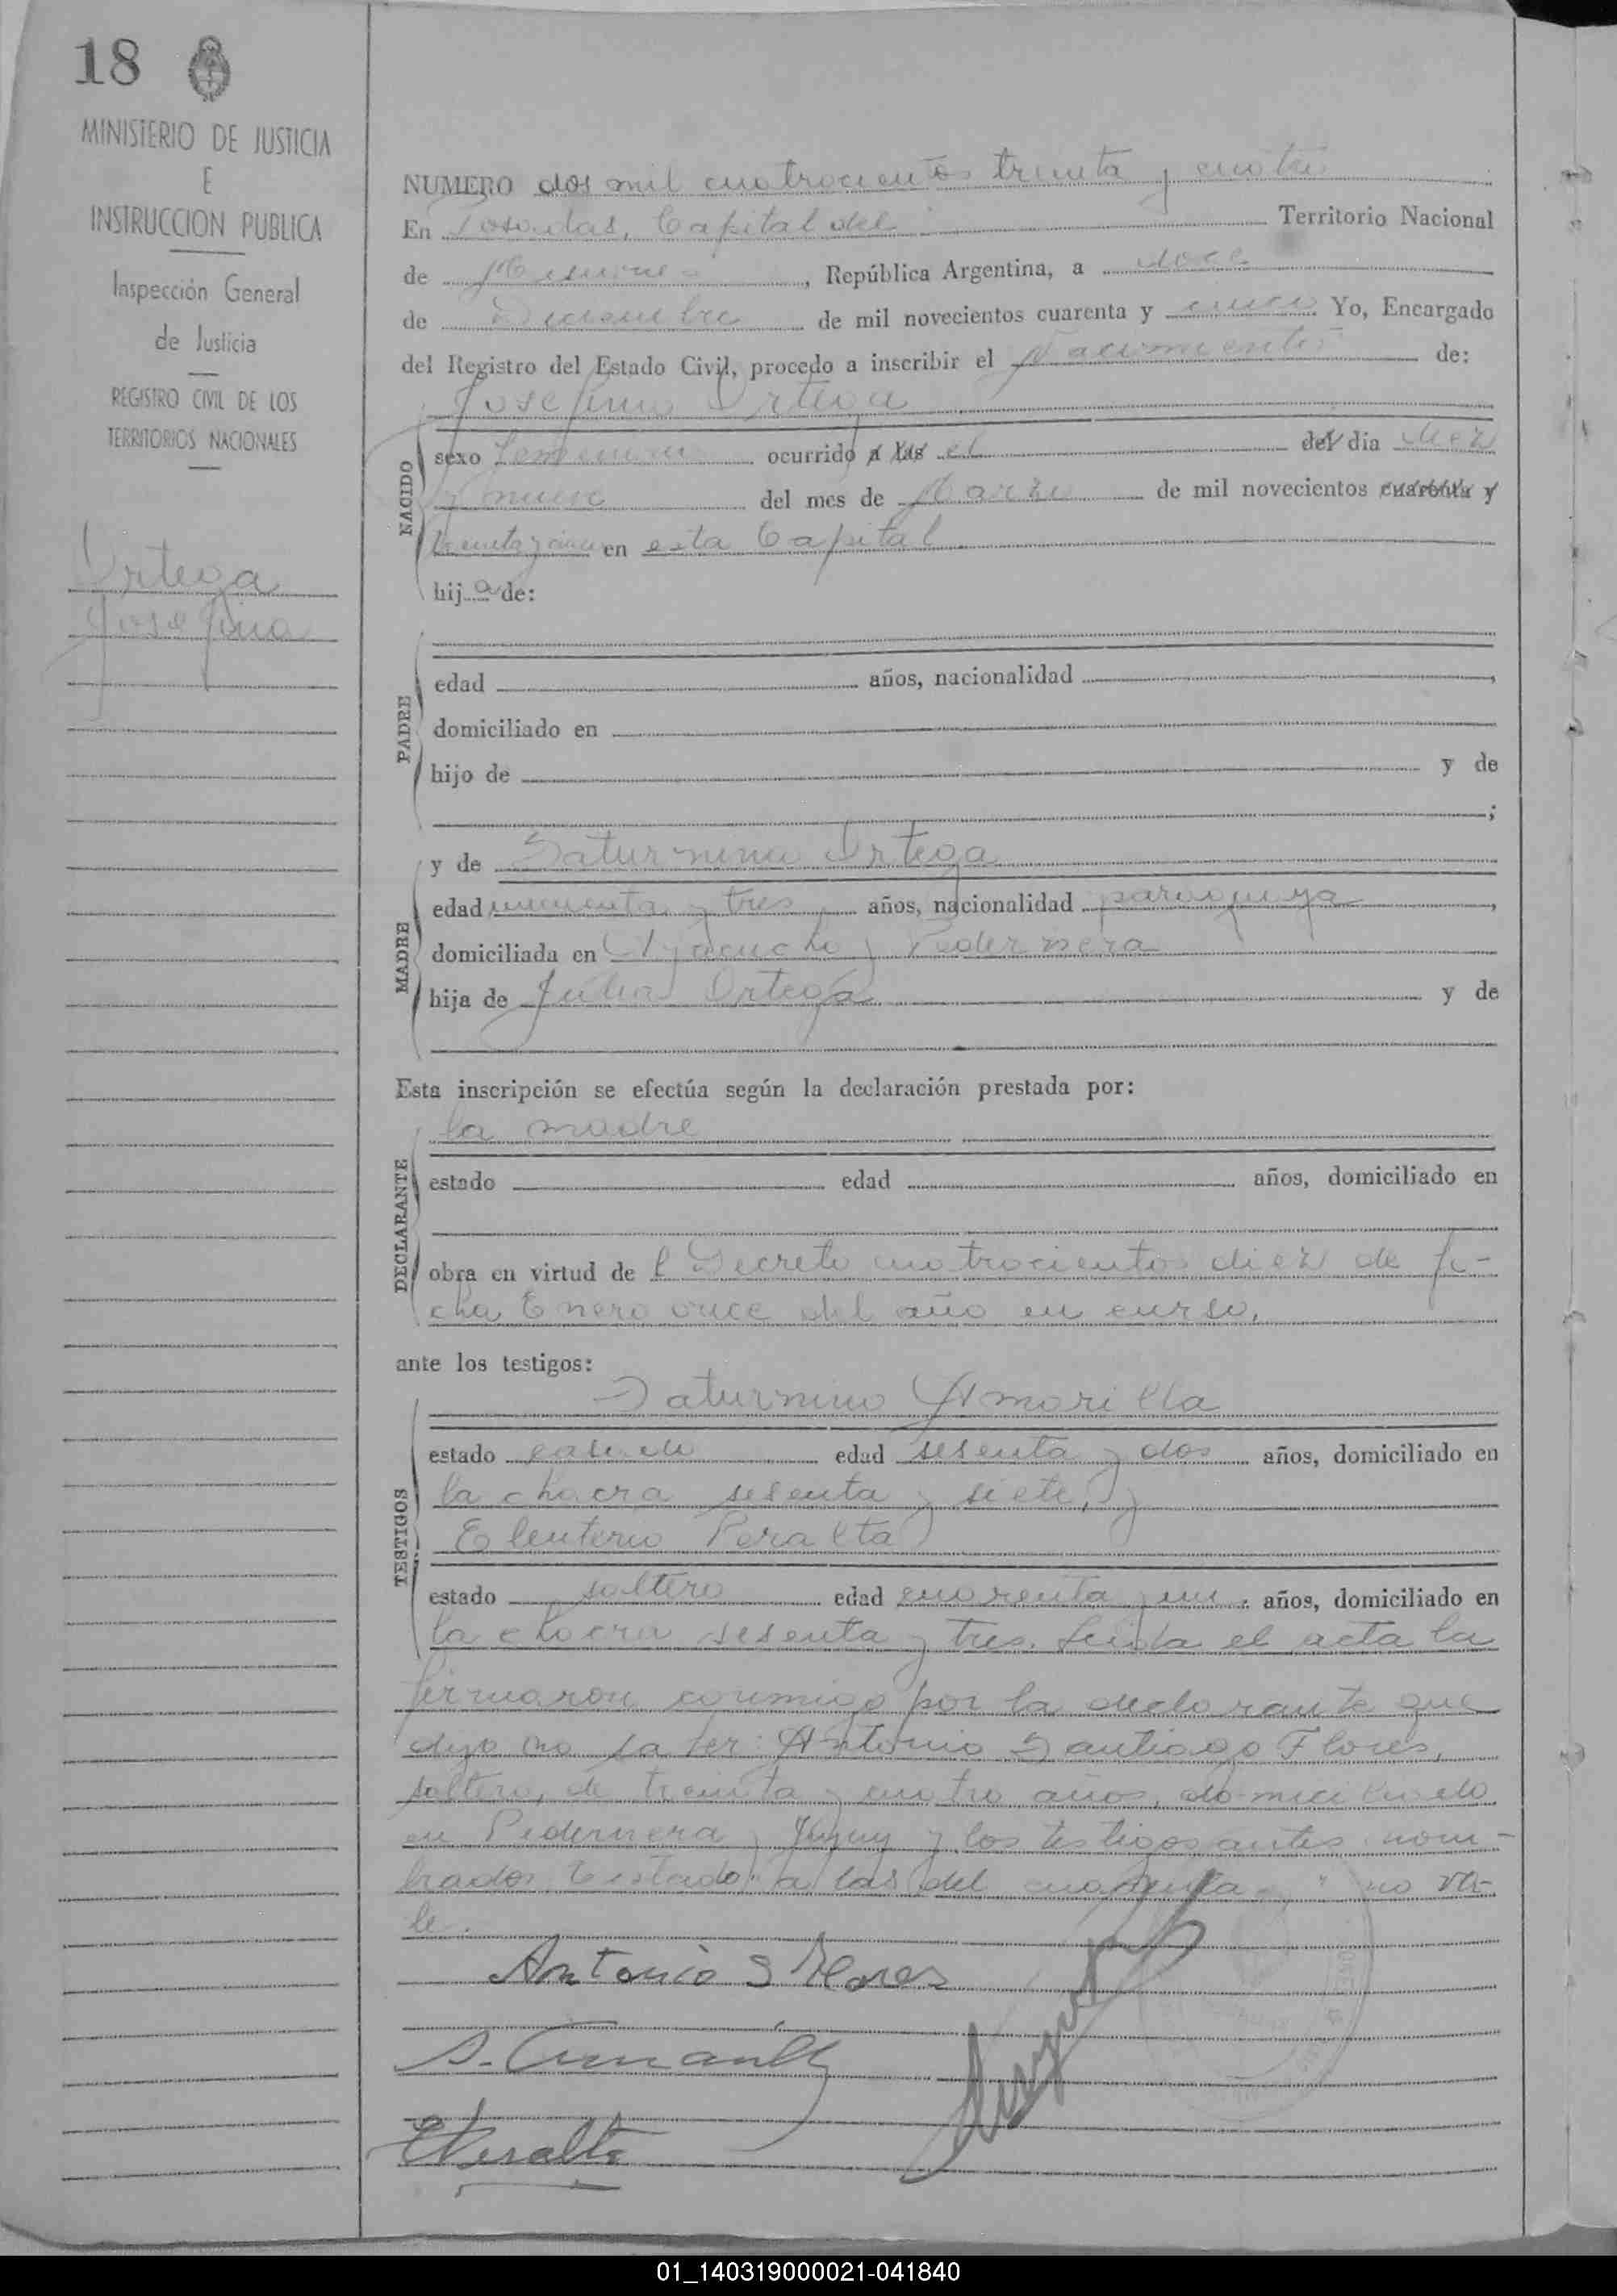 18
MINISTERIO DE JUSTICIA
E
INSTRUCCION PUBLICA
Inspección General
de Justicia
REGISTRO CIVIL DE LOS
TERRITORIOS NACIONALES
Ortega
Josefina
NUMERO dos mil cuatrocientos treinta y cuatro
En Posadas, Capital del Territorio Nacional
de Misiones, República Argentina, a doce
de Diciembre de mil novecientos cuarenta y cinco Yo, Encargado
del Registro del Estado Civil, procedo a inscribir el Nacimiento de:
Josefina Ortega
NACIDO
sexo femenino ocurrido a las el del dia diez
y nueve del mes de Marzo de mil novecientos cuarenta y
treinta y cinco en esta Capital
hija de:
PADRE
edad años, nacionalidad ,
domiciliado en
hijo de y de
;
MADRE
y de Saturnina Ortega
edad cincuenta y tres años, nacionalidad paraguaya,
domiciliada en Ayacucho y Pedernera
hija de Julia Ortega y de
Esta inscripción se efectúa según la declaración prestada por:
DECLARANTE
la madre
estado edad años, domiciliado en
obra en virtud de l Decreto cuatrocientos diez de fe-
cha Enero once del año en curso,
ante los testigos:
TESTIGOS
Saturnino Amarilla
estado casado edad sesenta y dos años, domiciliado en
la chacra sesenta y siete, y
Eleuterio Peralta
estado soltero edad cuarenta y un años, domiciliado en
la chacra sesenta y tres. Leida el acta la
firmaron conmigo por la declarante que
dijo no saber: Antonio Santiago Flores,
soltero, de treinta y cuatro años, domiciliado
en Pedernera y Jujuy y los testigos antes nom-
brados. Testado: a las del cuarenta y " no va-
le.
Antonio S Flores
S. Amarilla
E Peralta
01_140319000021-041840